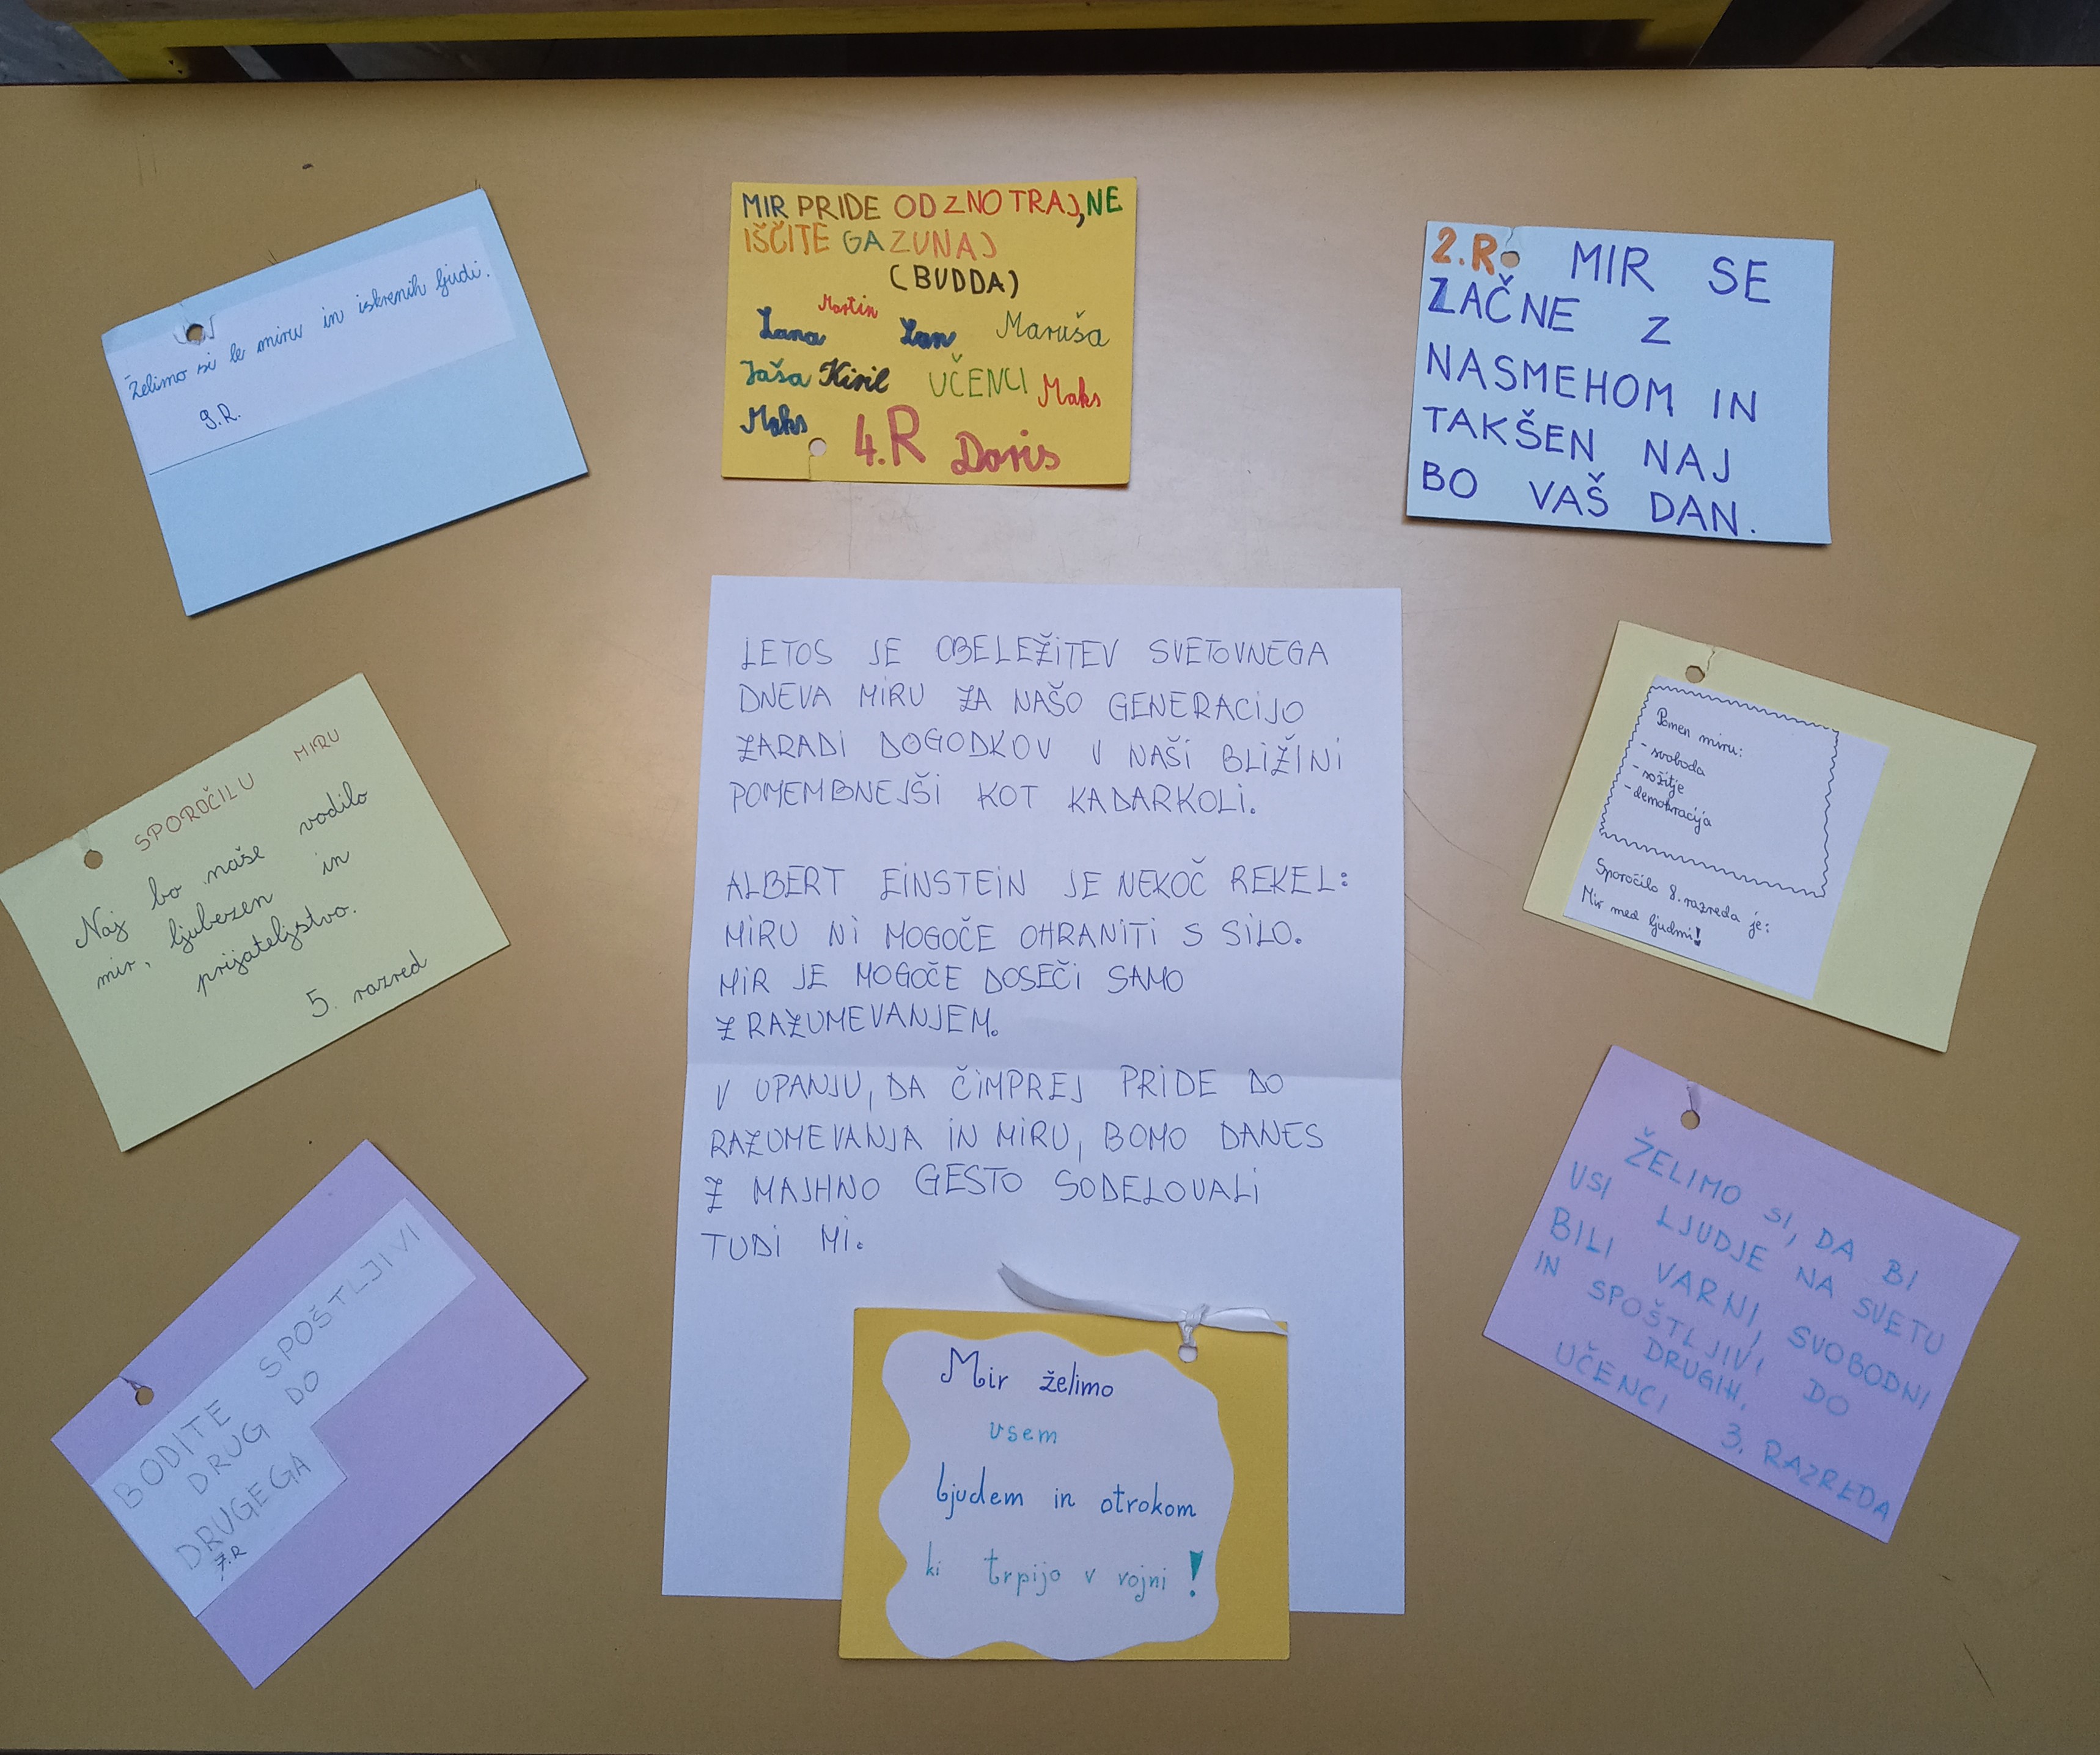 Želimo si le miru in iskrenih ljudi.
9.R.
MIR PRIDE OD ZNOTRAJ, NE
IŠČITE GA ZUNAJ
(BUDDA)
Martin
Lana Lan Maruša
Jaša Kiril UČENCI Maks
Maks 4.R Doris
2.R MIR SE
ZAČNE Z
NASMEHOM IN
TAKŠEN NAJ
BO VAŠ DAN.
SPOROČILU MIRU
Naj bo naše vodilo
mir, ljubezen in
prijateljstvo.
5. razred
LETOS JE OBELEŽITEV SVETOVNEGA
DNEVA MIRU ZA NAŠO GENERACIJO
ZARADI DOGODKOV V NAŠI BLIŽINI
POMEMBNEJŠI KOT KADARKOLI.
ALBERT EINSTEIN JE NEKOČ REKEL:
MIRU NI MOGOČE OHRANITI S SILO.
MIR JE MOGOČE DOSEČI SAMO
Z RAZUMEVANJEM.
V UPANJU, DA ČIMPREJ PRIDE DO
RAZUMEVANJA IN MIRU, BOMO DANES
Z MAJHNO GESTO SODELOVALI
TUDI MI.
Pomen miru:
- svoboda
- sožitje
- demokracija
Sporočilo 8. razreda je:
Mir med ljudmi!
BODITE SPOŠTLJIVI
DRUG DO
DRUGEGA
7.R
Mir želimo
vsem
ljudem in otrokom
ki trpijo v vojni!
ŽELIMO SI, DA BI
VSI LJUDJE NA SVETU
BILI VARNI, SVOBODNI
IN SPOŠTLJIVI DO
DRUGIH.
UČENCI 3. RAZREDA